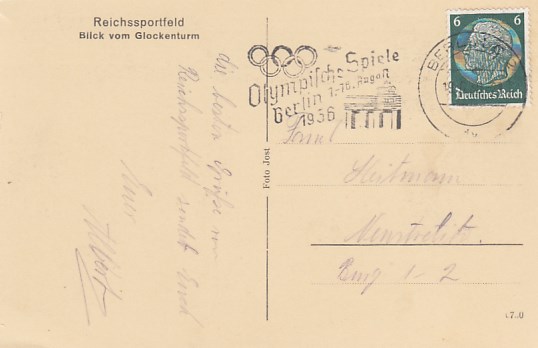 Reichssportfeld
Blick vom Glockenturm
die besten Grüße vom
Reichssportfeld sendet Euch
Euer
Albert
Olympische Spiele
Berlin 1.-16. August
1936
BERLIN
6 6
Deutsches Reich
Foto Jost
Fam.
Heitmann
Neustrelitz